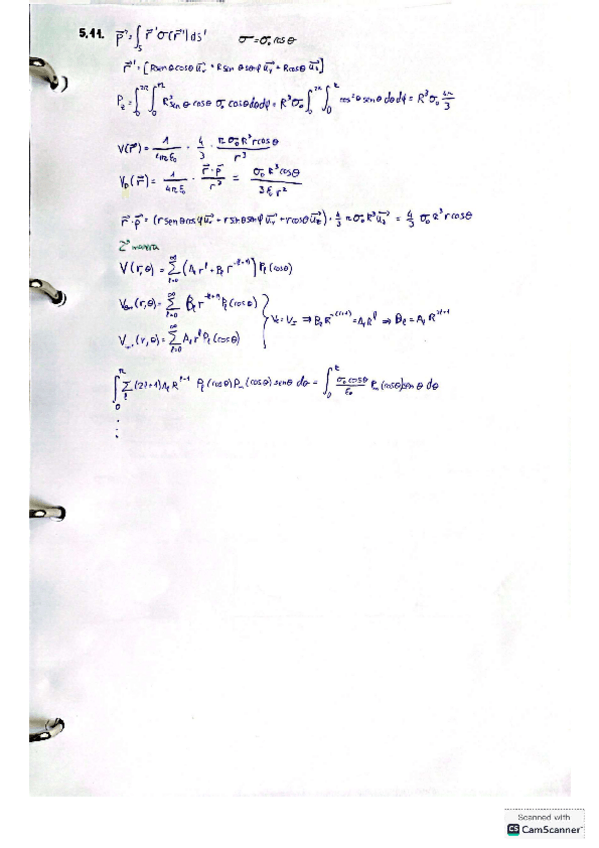 5.11. p⃗ = ∫_S r⃗' σ(r⃗') ds'   σ = σ₀ cosθ
r⃗' = [R senθ cosφ u⃗ₓ + R senθ senφ u⃗ᵧ + R cosθ u⃗_z]
P_z = ∫₀^{2π} ∫₀^{π} R³ senθ cosθ σ₀ cosθ dθ dφ = R³ σ₀ ∫₀^{2π} ∫₀^{π} cos²θ senθ dθ dφ = R³ σ₀ 4π/3
V(r⃗) = 1/(4πε₀) · 4/3 · πσ₀R³ r cosθ / r³
V_p(r⃗) = 1/(4πε₀) · r⃗·p⃗ / r³ = σ₀ R³ cosθ / 3ε₀ r²
r⃗·p⃗ = (r senθ cosφ u⃗ₓ + r senθ senφ u⃗ᵧ + r cosθ u⃗_z) · 4/3 πσ₀R³ u⃗_z = 4/3 σ₀ R³ r cosθ
2ª manera
V(r,θ) = Σ_{l=0}^{∞} (A_l r^l + B_l r^{-(l+1)}) P_l(cosθ)
(r,θ) = Σ_{l=0}^{∞} B_l r^{-(l+1)} P_l(cosθ)
V (r,θ) = Σ_{l=0}^{∞} A_l r^l P_l(cosθ)
⇒ B_l R^{-(l+1)} = A_l R^l ⇒ B_l = A_l R^{2l+1}
∫₀^{π} Σ_l (2l+1) A_l R^{l-1} P_l(cosθ) P_m(cosθ) senθ dθ = ∫₀^{π} σ₀cosθ/ε₀ P_m(cosθ) senθ dθ
⋮
Scanned with
CS CamScanner